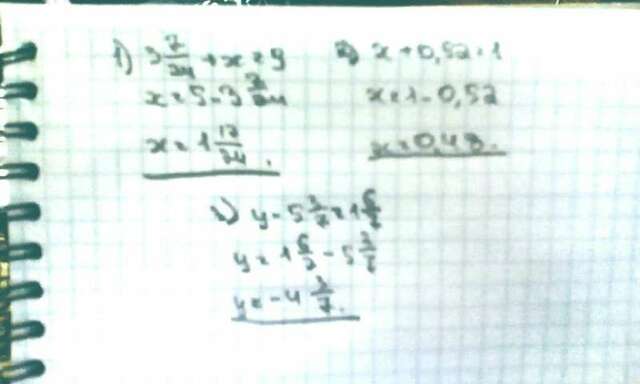 1) 3 7/24 + x = 5
x = 5 - 3 7/24
x = 1 17/24.
2) x + 0,52 = 1
x = 1 - 0,52
x = 0,48.
3) y - 5 3/7 = 1 6/7
y = 1 6/7 - 5 3/7
y = -4 3/7.